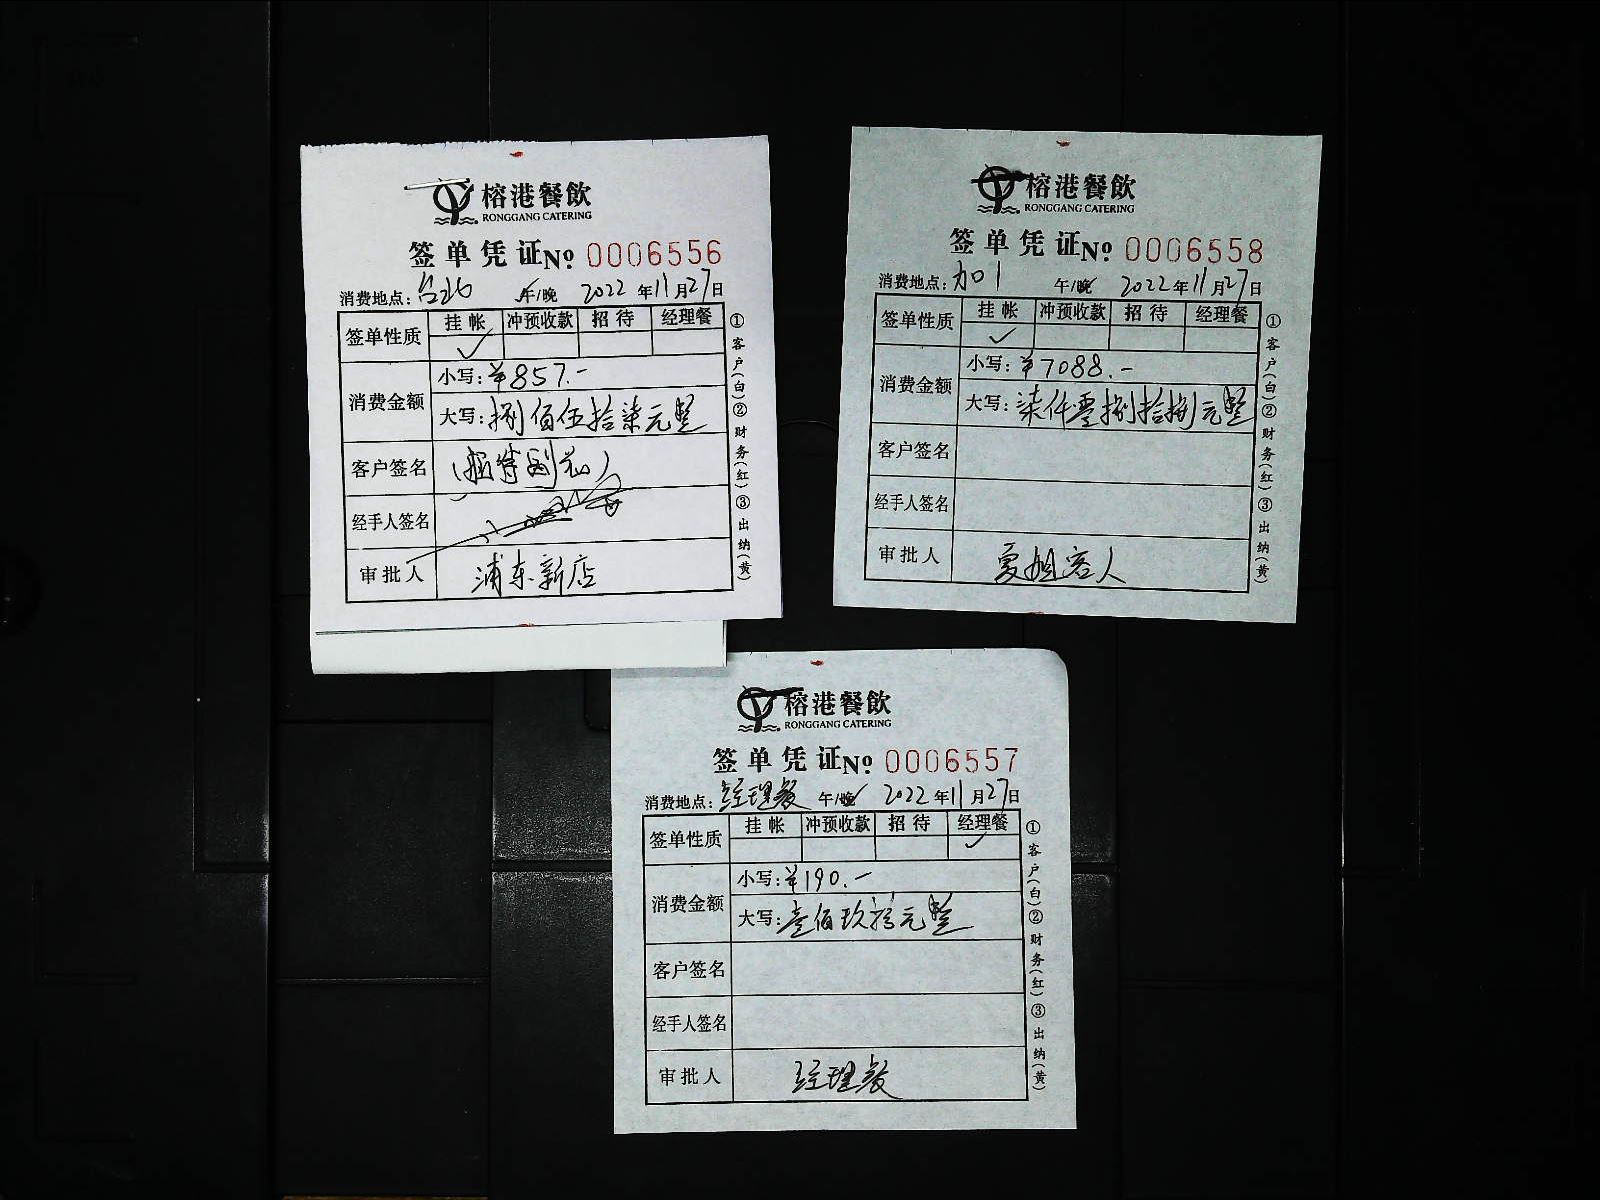 榕港餐飲
RONGGANG CATERING
签单凭证 No 0006556
消费地点：台北 午/晚 2022年11月27日
签单性质 挂帐 冲预收款 招待 经理餐
✓
消费金额 小写：¥857.-
大写：捌佰伍拾柒元整
客户签名
经手人签名
审批人 浦东新店
①客户(白)②财务(红)③出纳(黄)
榕港餐飲
RONGGANG CATERING
签单凭证 No 0006558
消费地点：加1 午/晚 2022年11月27日
签单性质 挂帐 冲预收款 招待 经理餐
✓
消费金额 小写：¥7088.-
大写：柒仟零捌拾捌元整
客户签名
经手人签名
审批人 夏旭客人
①客户(白)②财务(红)③出纳(黄)
榕港餐飲
RONGGANG CATERING
签单凭证 No 0006557
消费地点：经理餐 午/晚 2022年11月27日
签单性质 挂帐 冲预收款 招待 经理餐
✓
消费金额 小写：¥190.-
大写：壹佰玖拾元整
客户签名
经手人签名
审批人 经理餐
①客户(白)②财务(红)③出纳(黄)